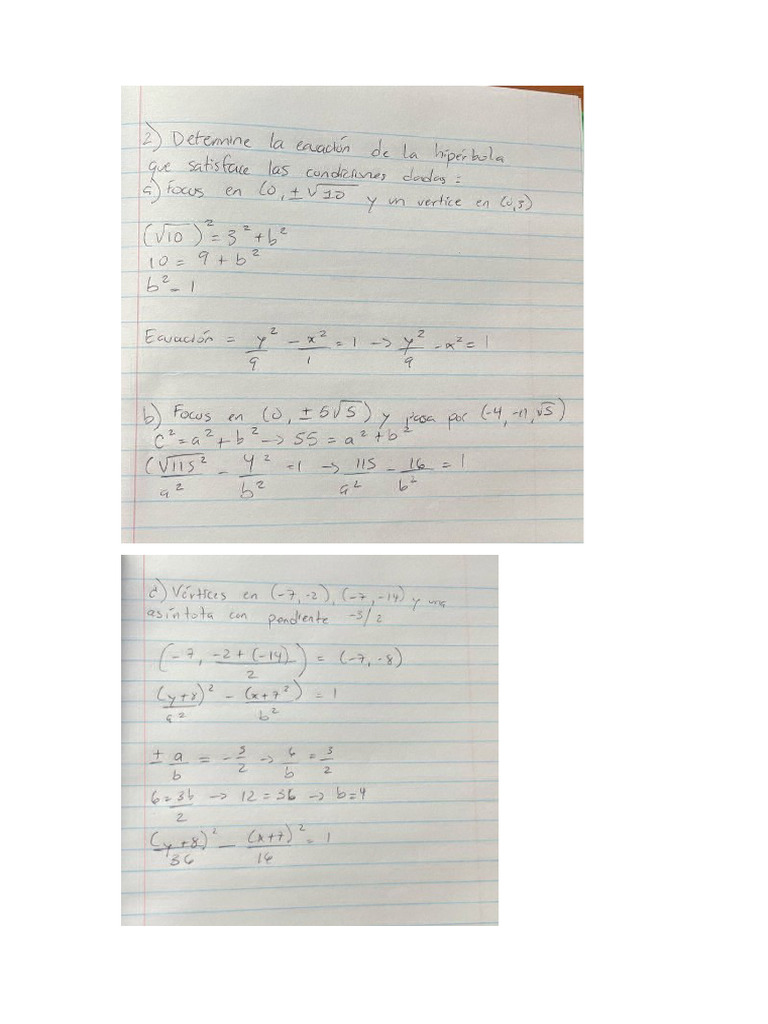 2) Determine la ecuación de la hipérbola
que satisface las condiciones dadas:
a) Focus en (0, ±√10) y un vertice en (0,3)
(√10)² = 3² + b²
10 = 9 + b²
b² = 1
Ecuación = y²/9 - x²/1 = 1 → y²/9 - x² = 1
b) Focus en (0, ±5√5) y pasa por
c² = a² + b² → 55 = a² + b²
(√115²/a² - 4²/b² = 1 → 115/a² - 16/b² = 1
d) Vértices en (-7, -2), (-7, -14) y una
asíntota con pendiente -3/2
(-7, -2 + (-14)/2) = (-7, -8)
(y+8)²/a² - (x+7²)/b² = 1
± a/b = -3/2 → 6/b = 3/2
6 = 3b/2 → 12 = 3b → b = 4
(y+8)²/36 - (x+7)²/16 = 1